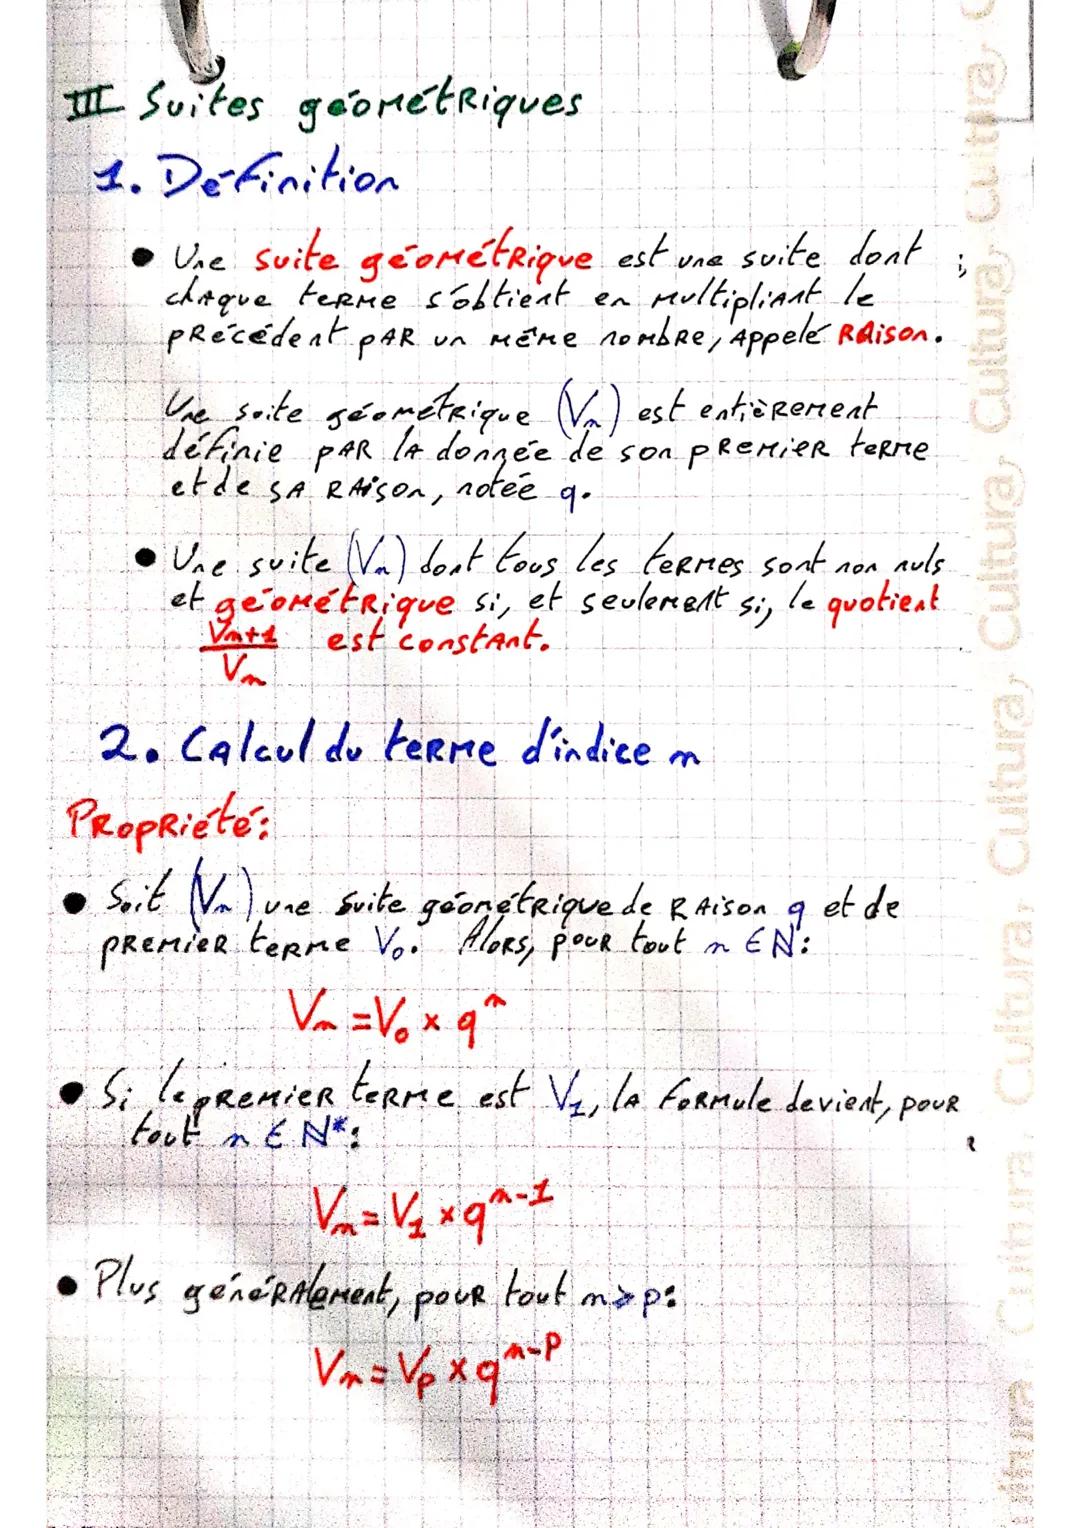 III Suites géométriques
1. Définition
• Une suite géométrique est une suite dont
chaque terme s'obtient en multipliant le
précédent par un même nombre, appelé raison.
Une suite géométrique (Vn) est entièrement
définie par la donnée de son premier terme
et de sa raison, notée q.
• Une suite (Vn) dont tous les termes sont non nuls
et géométrique si, et seulement si, le quotient
Vn+1 / Vn est constant.
2. Calcul du terme d'indice n
Propriété:
• Soit (Vn) une suite géométrique de raison q et de
premier terme V₀. Alors, pour tout n ∈ ℕ:
Vn = V₀ × qⁿ
• Si le premier terme est V₁, la formule devient, pour
tout n ∈ ℕ*:
Vn = V₁ × qⁿ⁻¹
• Plus généralement, pour tout n>p:
Vn = Vp × qⁿ⁻ᵖ
Cultura, Cultura, Cultura, Cultura, Cultura, Cultura